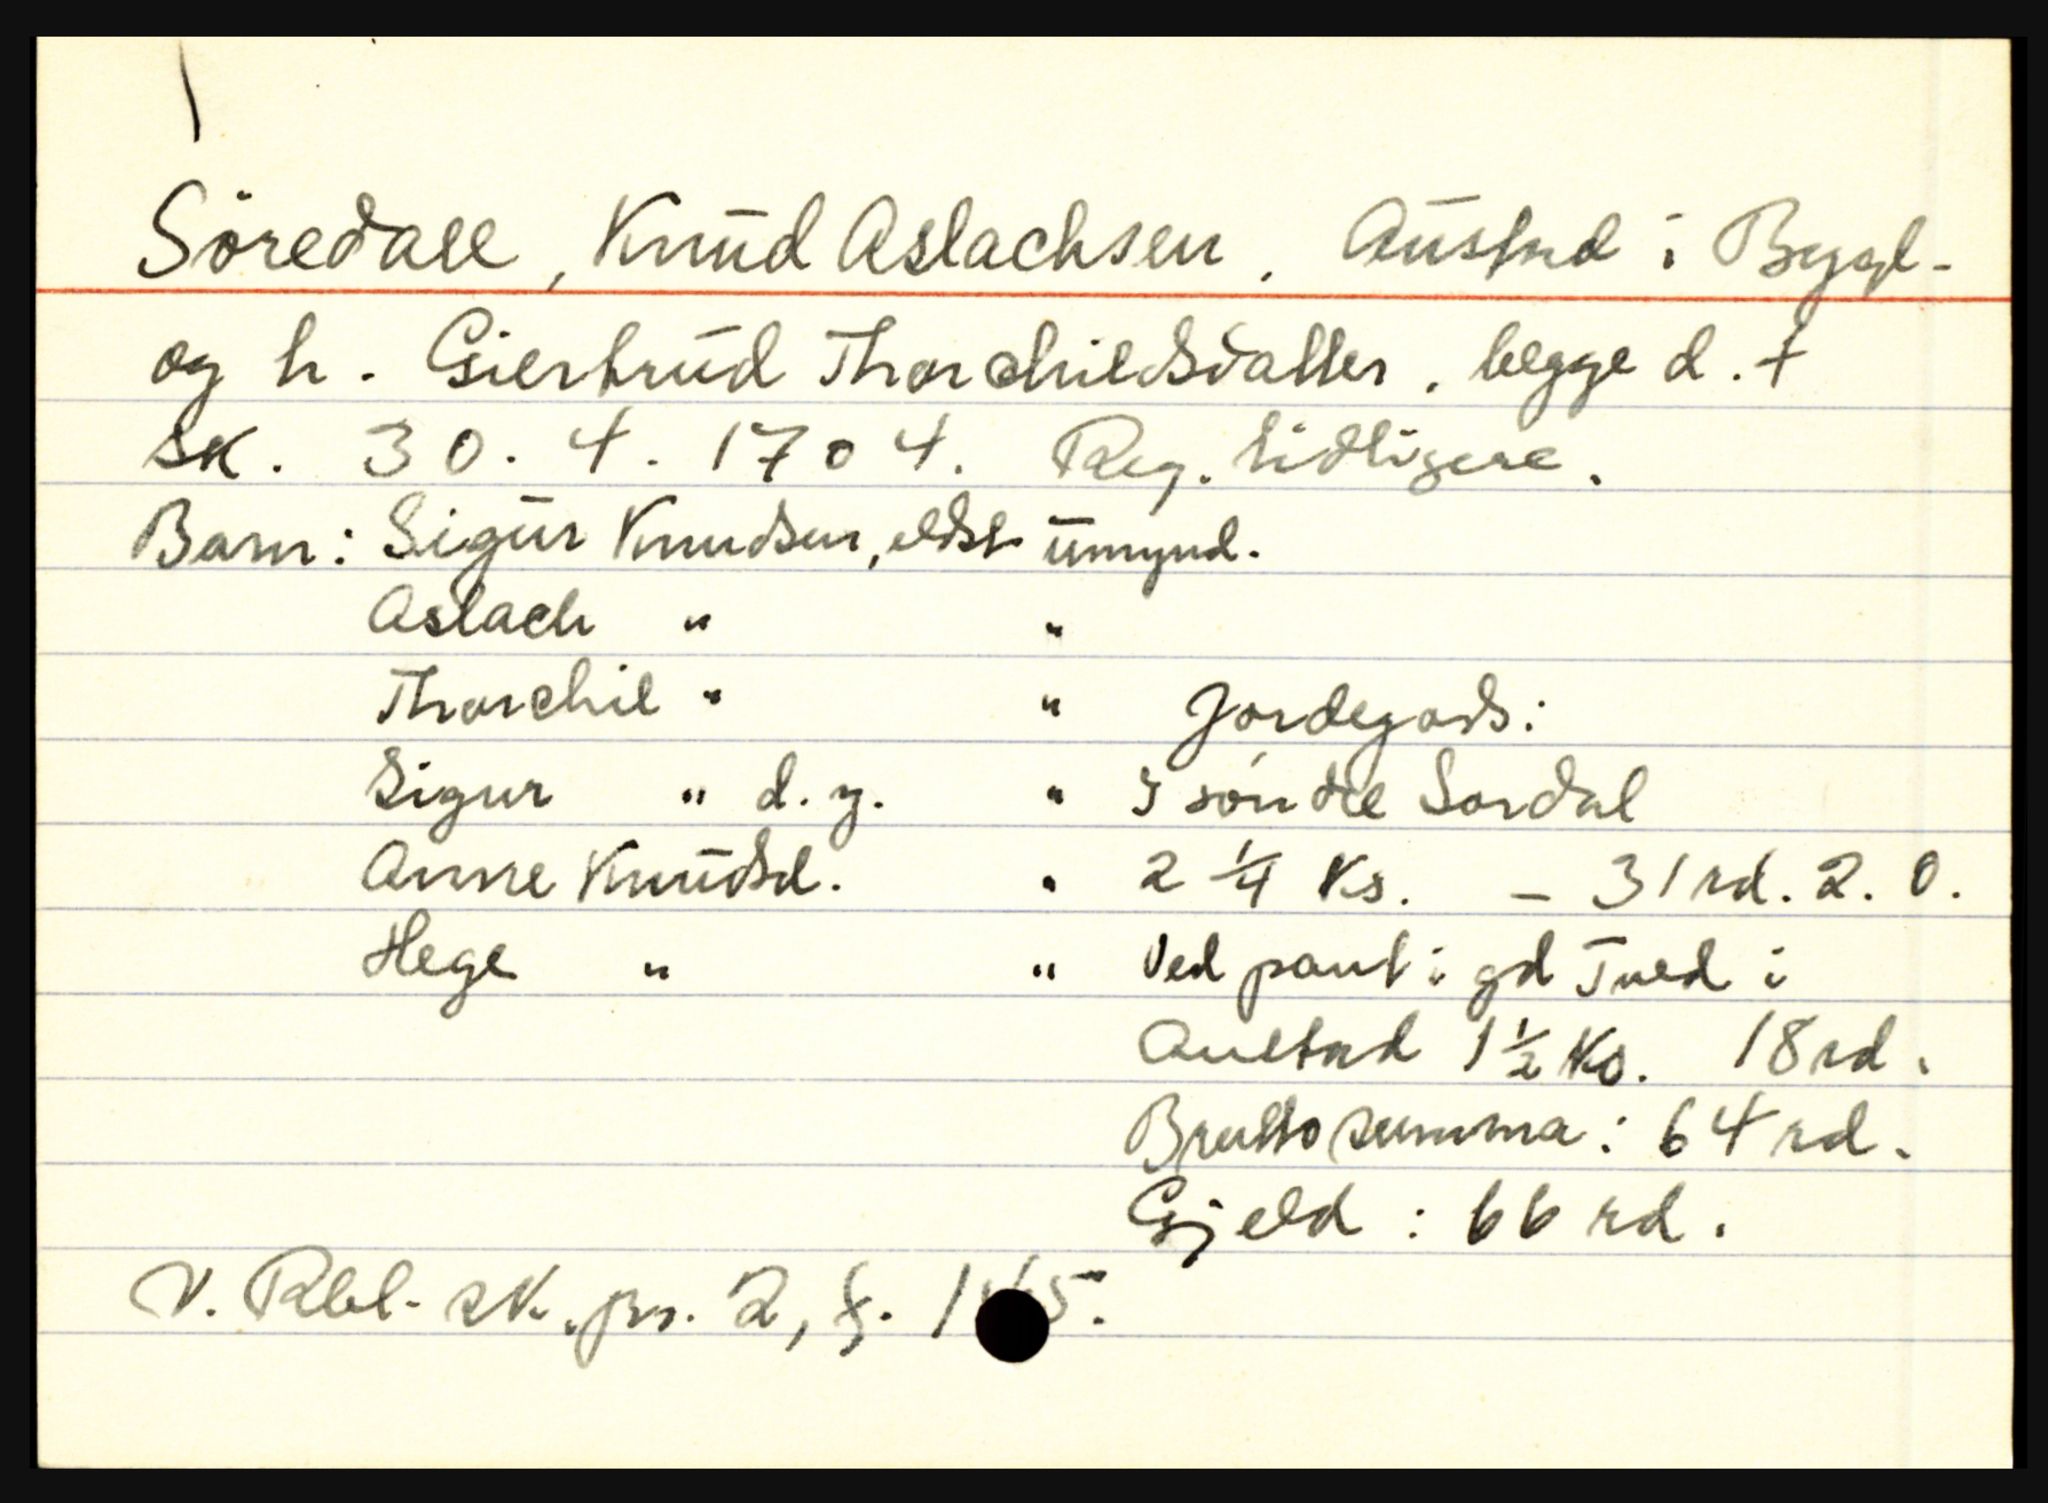 Søredall, Knud Aslachsen. Austad i Bygl-
og h. Giertrud Thorchildsdatter. begge d. †
sk. 30. 4. 1704. Reg. tidligere.
Barn: Sigur Knudsen, eldst umynd.
Aslach " "
Thorchil " " Jordegods:
Sigur " d. y. " I søndre Sordal
Anne Knudsd. " 2 1/4 Ks. – 31 rd. 2. 0.
Hege " " Ved pant i gd Tved i
Austad 1 1/2 Ks. 18 rd.
Brutto summa: 64 rd.
Gjeld: 66 rd.
V. Rbl. sk. pr. 2, f.